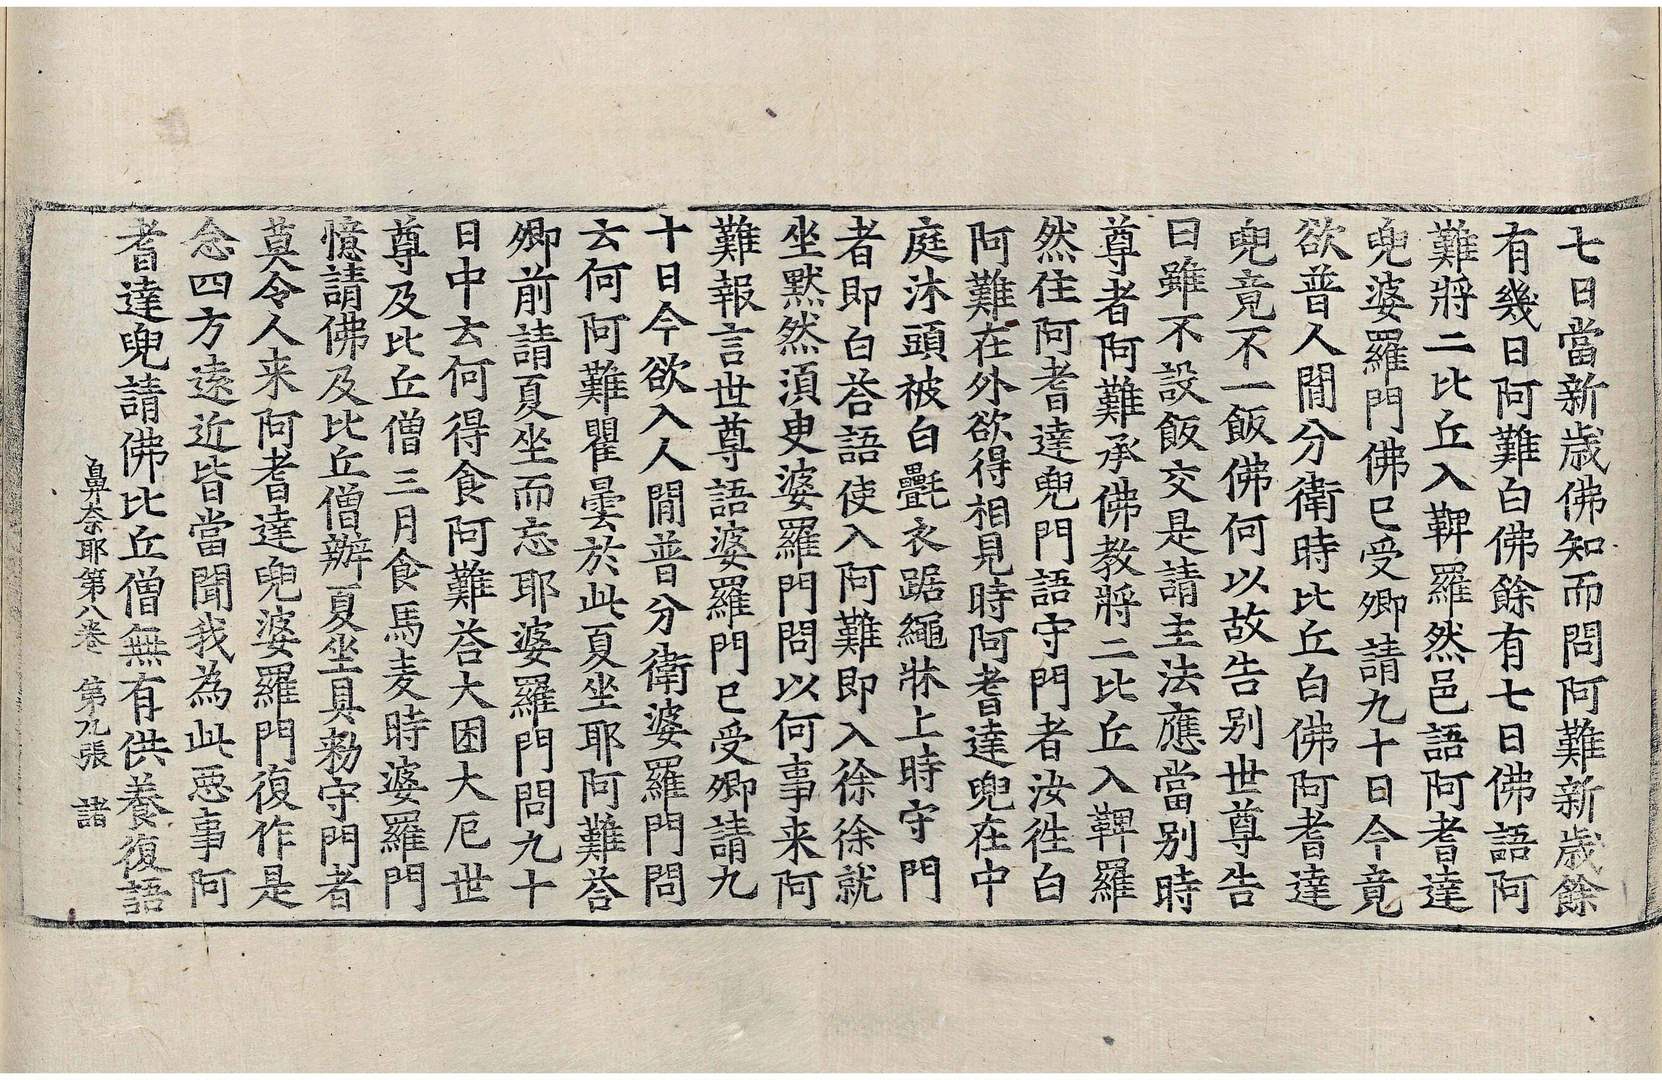 七日當新歲佛知而問阿難新歲餘
有幾日阿難白佛餘有七日佛語阿
難將二比丘入鞞羅然邑語阿耆達
兜婆羅門佛已受卿請九十日今竟
欲普人閒分衛時比丘白佛阿耆達
兜竟不一飯佛何以故告别世尊告
曰雖不設飯交是請主法應當别時
尊者阿難承佛教將二比丘入鞞羅
然住阿耆達兜門語守門者汝徃白
阿難在外欲得相見時阿耆達兜在中
庭沐頭被白㲲衣踞繩牀上時守門
者即白荅語使入阿難即入徐徐就
坐默然湏臾婆羅門問以何事来阿
難報言世尊語婆羅門已受卿請九
十日今欲入人閒普分衛婆羅門問
云何阿難瞿曇於此夏坐耶阿難荅
卿前請夏坐而忘耶婆羅門問九十
日中云何得食阿難荅大困大厄世
尊及比丘僧三月食馬麦時婆羅門
憶請佛及比丘僧辦夏坐具勑守門者
莫令人来阿耆達兜婆羅門復作是
念四方遠近皆當聞我為此惡事阿
耆達兜請佛比丘僧無有供養復語
鼻奈耶第八卷 第九張 諸